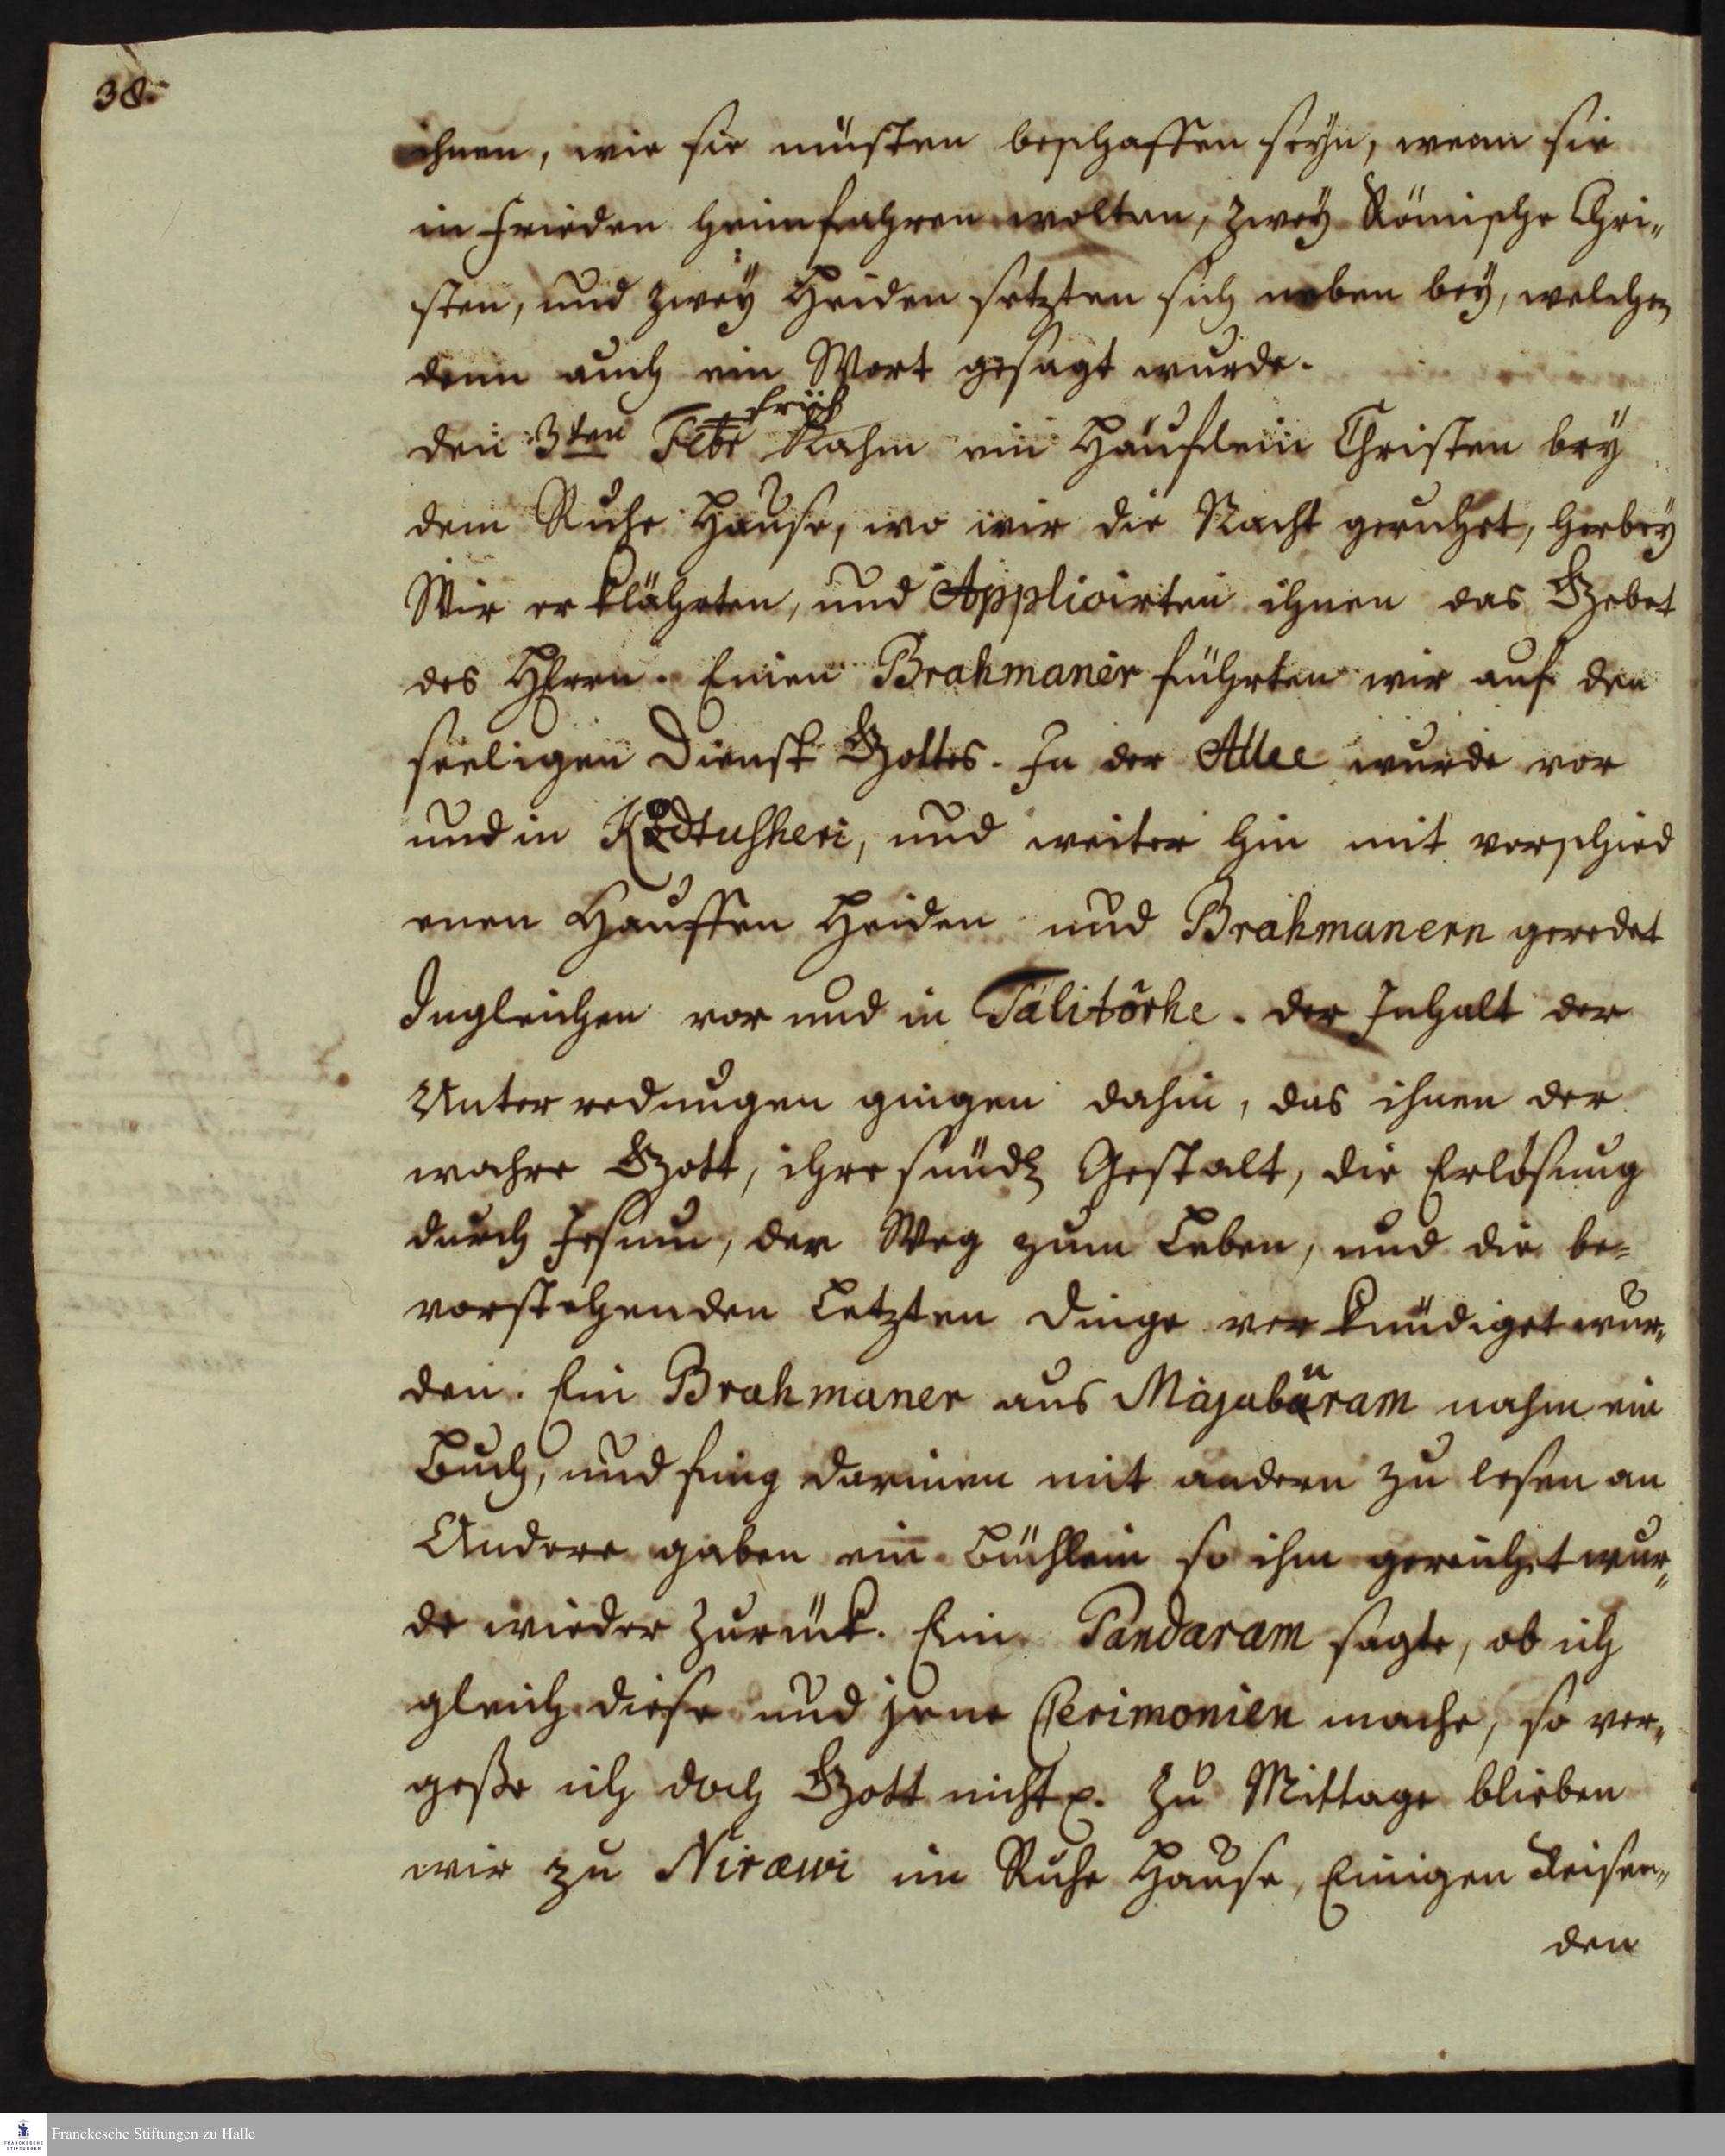 38.
ihnen, wie sie müsten beschaffen seÿn, wenn sie
in Frieden heimfahren wolten, zweÿ Römische Chri„
sten, und zweÿ Heiden setzten sich neben beÿ, welchen
denn auch ein Wort gesagt wurde.
früh
den 3ten Febr Kahm ein Häuflein Christen beÿ
dem Ruhe Hause, wo wir die Nacht geruhet, herbeÿ
Wir erklährten, und Applicirten ihnen das Gebet
des HErrn. Einen Brahmaner führten wir auf den
seeligen Dienst Gottes. In der Allee wurde vor
und in, und weiter hin mit verschied
enen Hauffen Heiden und Brahmanern geredet
Ingleichen vor und in Talitörhe. der Inhalt der
Unterredungen gingen dahin, das ihnen der
wahre Gott, ihre sündl Gestalt, die Erlösung
durch Jesum, der Weg zum Leben, und die be=
vorstehenden Letzten Dinge verkündiget wur„
den. Ein Brahmaner aus Majaburam nahm ein
Buch, und fing darinnen mit andern zu lesen an
Andere gaben ein Büchlein so ihm gereichet wur„
de wieder zurück. Ein Pandaram sagte, ob ich
gleich diese und jene Cerimonien mache, so ver„
geße ich doch Gott nicht p. Zu Mittage blieben
wir zu Nirawi im Ruhe Hause, Einigen Reisen„
den
Franckesche Stiftungen zu Halle